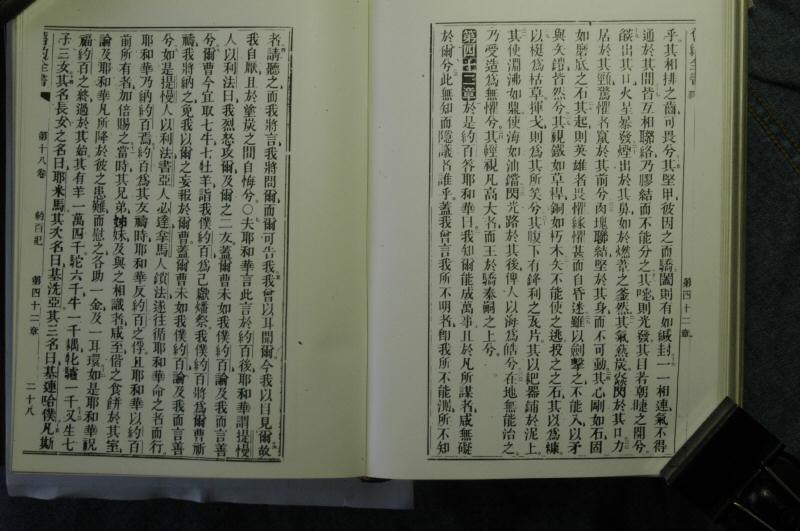 乎其相排之齒可畏兮其堅甲彼因之而驕闔則有如緘封一一相連氣不得
通於其間皆互相聯絡乃膠結而不能分之其嚏則光發其目若朝睫之開兮
燄出其口火星暴發煙出於其鼻如於燃葦之釜然其氣爇炭焱閃於其口力
居於其頸驚懼者竄於其前兮肉塊聯結堅於其身而不可動其心剛如石固
如磨底之石其起則英雄者畏懼緣懼甚而自昏迷雖以劍擊之不能入以矛
與矢鎧皆然兮其視鐵如草稈銅如朽木矢不能使之逃投之之石其以為糠
以梃為枯草揮戈則為其所笑兮其腹下有鋒利之瓦片其以耙器鋪於泥上
其使淵沸如鼎使海如油鐺閃光路於其後俾人以海為皓兮在地無能治之
乃受造為無懼兮其輕視凡高大名而王於驕泰嗣之上兮
第四十二章於是約百答耶和華曰我知爾能成萬事且於凡所謀者咸無礙
於爾兮此無知而隱議者誰乎蓋我曾言我所不明者即我所不能測所不知
第四十二章
者請聽之而我將言我將問爾而爾可告我我曾以耳聞爾今我以目見爾故
我自厭且於塵炭之間自悔兮○夫耶和華言此言於約百後耶和華謂提慢
人以利法曰我烈怒攻爾及爾之二友蓋爾曹未如我僕約百論及我而言善
兮爾曹今宜取七牛七牡羊詣我僕約百為己獻燔祭我僕約百將為爾曹祈
禱我將納之免我以爾之妄報於爾曹蓋爾曹未如我僕約百論及我而言善
兮如是提慢人以利法書亞人必達拿馬人瑣法遂往循耶和華命之者而行
耶和華乃納約百焉約百為其友禱時耶和華反約百之俘且耶和華以約百
前所有者加倍賜之當時其兄弟姊妹及與之相識者咸至偕之食餅於其室
論及耶和華凡所降於彼之患難而慰之各助一金及一耳環如是耶和華祝
福約百之終過於其始其有羊一萬四千駝六千牛一千耦牝驢一千又生七
子三女其名長女之名曰耶米馬其次名曰基洗亞其三名曰基連哈僕凡斯
舊約全書
第十八卷
約百記
第四十二章
二十八